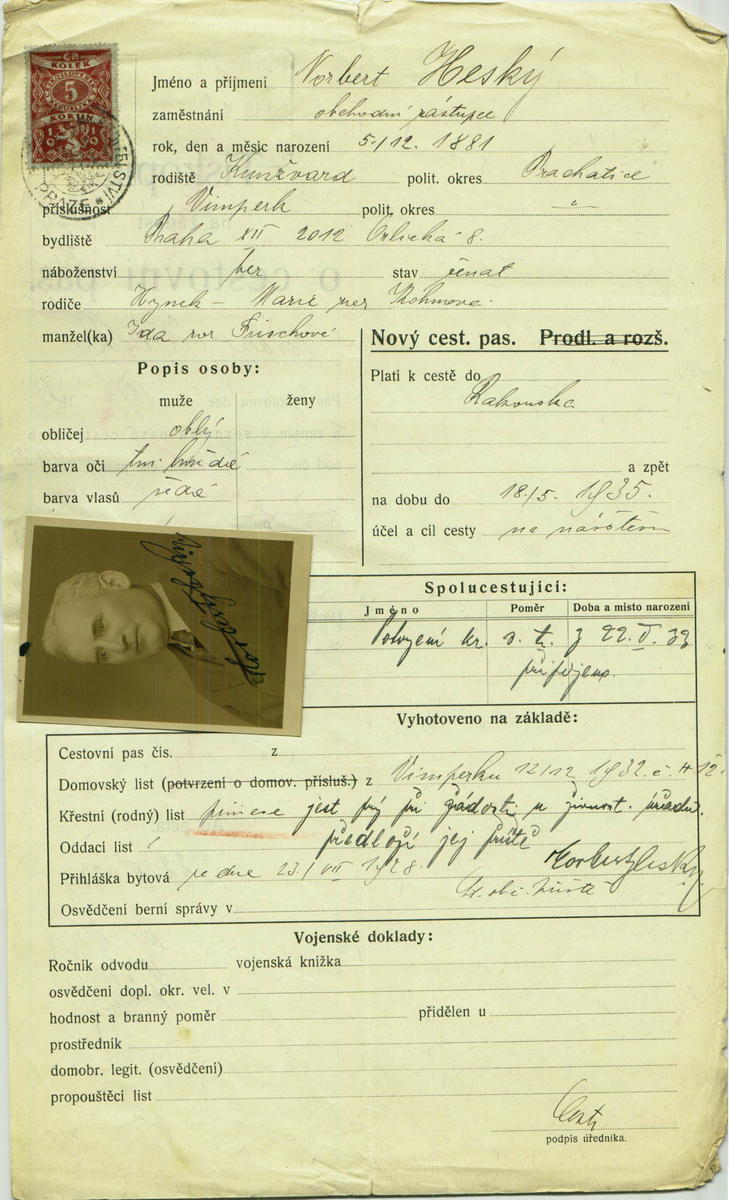 KOLEK
5
KORUN
PRAZE
Jméno a příjmení Norbert Heský
zaměstnání obchodní zástupce
rok, den a měsíc narození 5./12. 1881
rodiště Kunžvard polit. okres Prachatice
příslušnost Vimperk polit. okres "
bydliště Praha XII 2012 Orlická 8.
náboženství bez stav ženat
rodiče Hynek – Marie roz
manžel(ka) Ida roz Frischové
Nový cest. pas. Prodl. a rozš.
Popis osoby:
muže ženy
obličej oblý
barva očí tm. hnědé
barva vlasů šedé
Platí k cestě do
Rakouska
a zpět
na dobu do 18./5. 1935.
účel a cíl cesty na
Spolucestující:
Jméno Poměr Doba a místo narození
Potvrzení z 22. V. 33
připojeno.
Vyhotoveno na základě:
Cestovní pas čís. z
Domovský list (potvrzení o domov. přísluš.) z Vimperku 12/12 1932 č.
Křestní (rodný) list jest prý při žádosti u živnost. úřadu.
Oddací list předloží jej příště
Přihláška bytová ze dne 23/VII 1928. Norbert Hesky
Osvědčení berní správy v
Vojenské doklady:
Ročník odvodu vojenská knížka
osvědčení dopl. okr. vel. v
hodnost a branný poměr přidělen u
prostředník
domobr. legit. (osvědčení)
propouštěcí list
podpis úředníka.